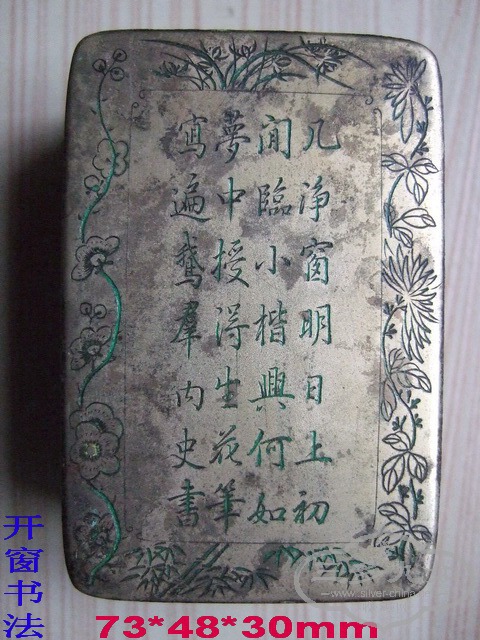 几净窗明日上初
闲臨小楷興何如
夢中授得生花筆
寫遍鵞羣内史書
开窗书法
73*48*30mm